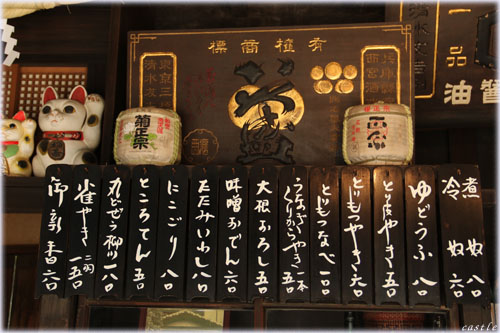 菊正宗
正宗
一品
醤油
煮奴 八〇
冷奴 六〇
ゆどうふ 八〇
とり皮やき 五〇
とりもつやき 六〇
とりもつなべ
うなぎくりからやき 一本 五〇
大根おろし 五〇
味噌おでん 六〇
たたみいわし 八〇
にこごり 八〇
ところてん 五〇
丸どぜう柳川 一八〇
雀やき 二羽 一五〇
御新香 六〇
castle